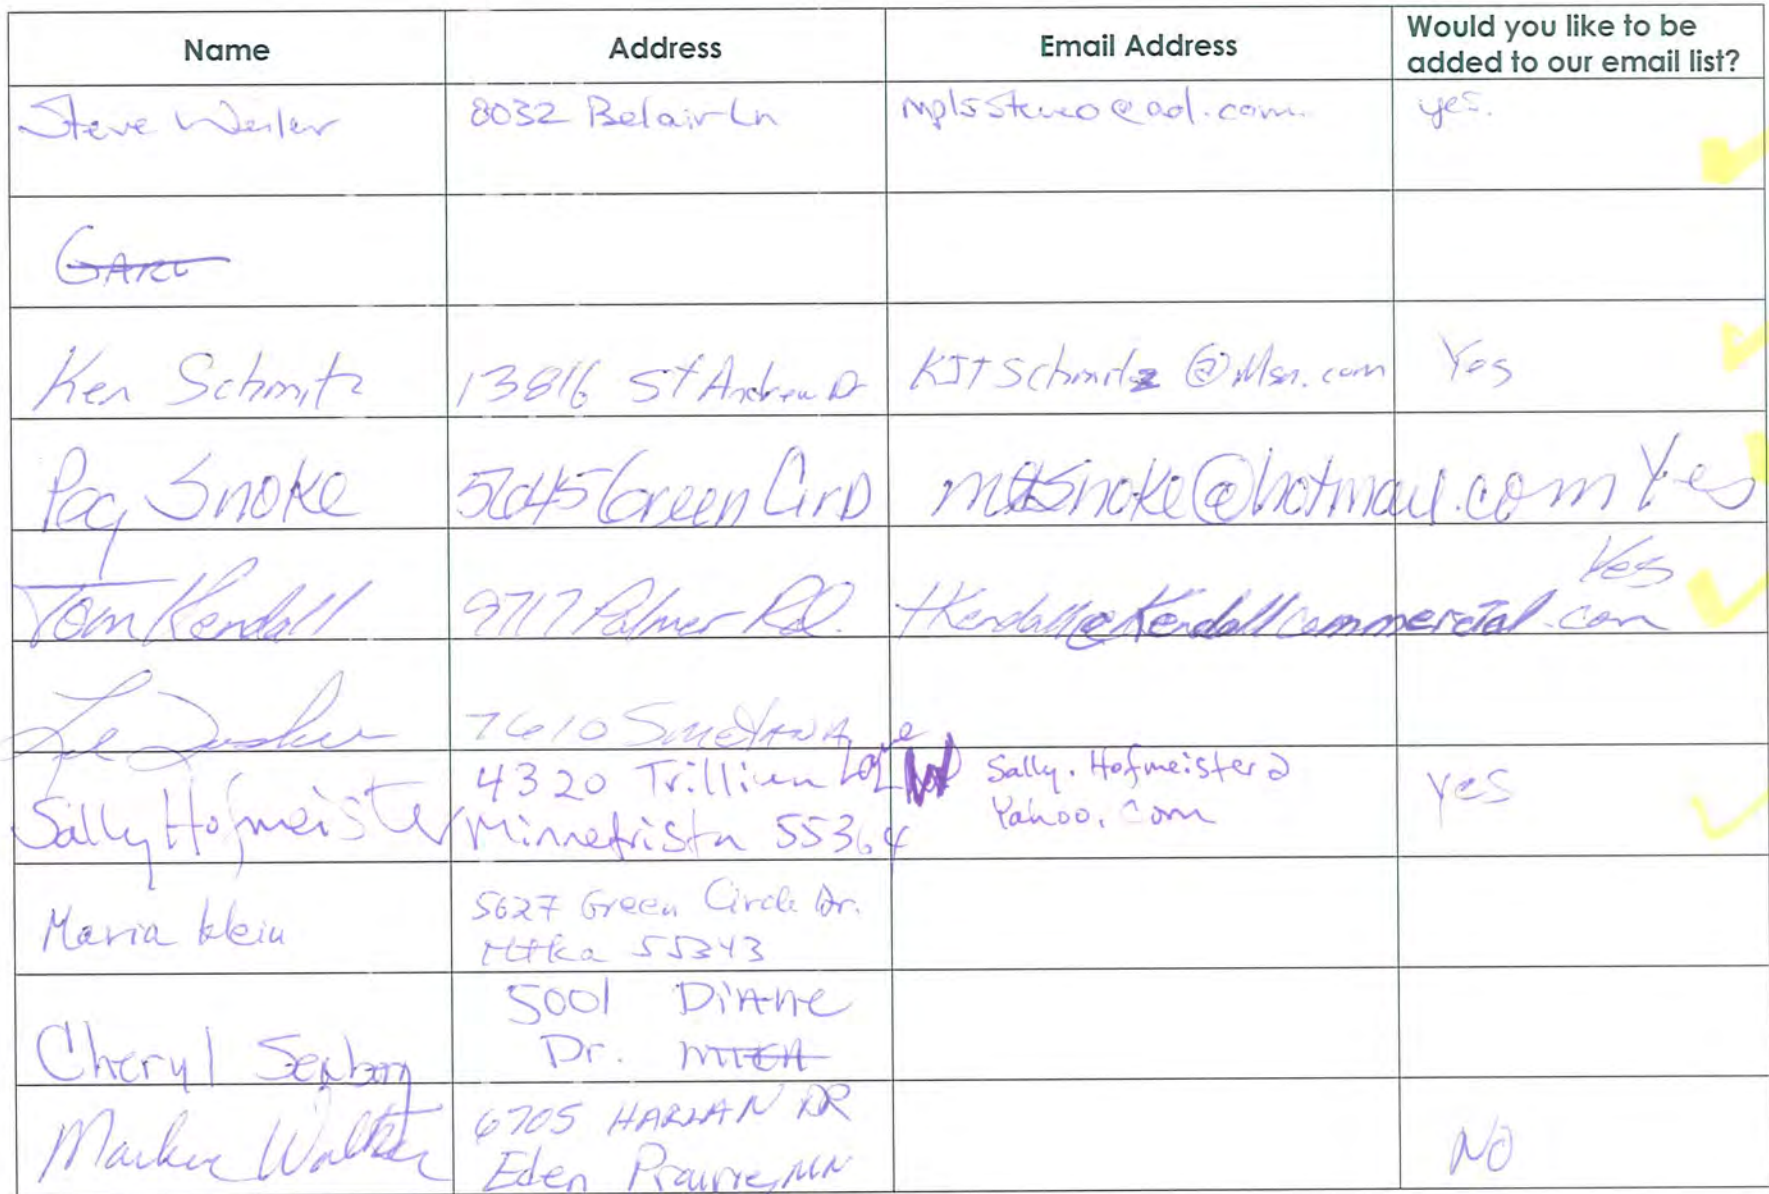 Name Address Email Address Would you like to be
added to our email list?
Steve Weiler 8032 Belair Ln mplsSteveo@aol.com. yes.
GARY
Ken Schmitz 13816 St Andrew Dr KJTSchmitz@Msn.com Yes
Peg Snoke 5645 Green Cir D mtsnoke@hotmail.com Yes
Tom Kendall 9717 Palmer Rd. tkendall@kendallcommercial.com Yes
7610 SmetANA
Sally Hofmeister 4320 Trillium Lane Sally.Hofmeister@ yes
Minnetrista 55364 Yahoo.com
Maria Klein 5627 Green Circle Dr.
Mtka 55343
5001 DiAne
Cheryl Dr. MTKA
Walker 6705 HARLAN DR NO
Eden Prairie, MN